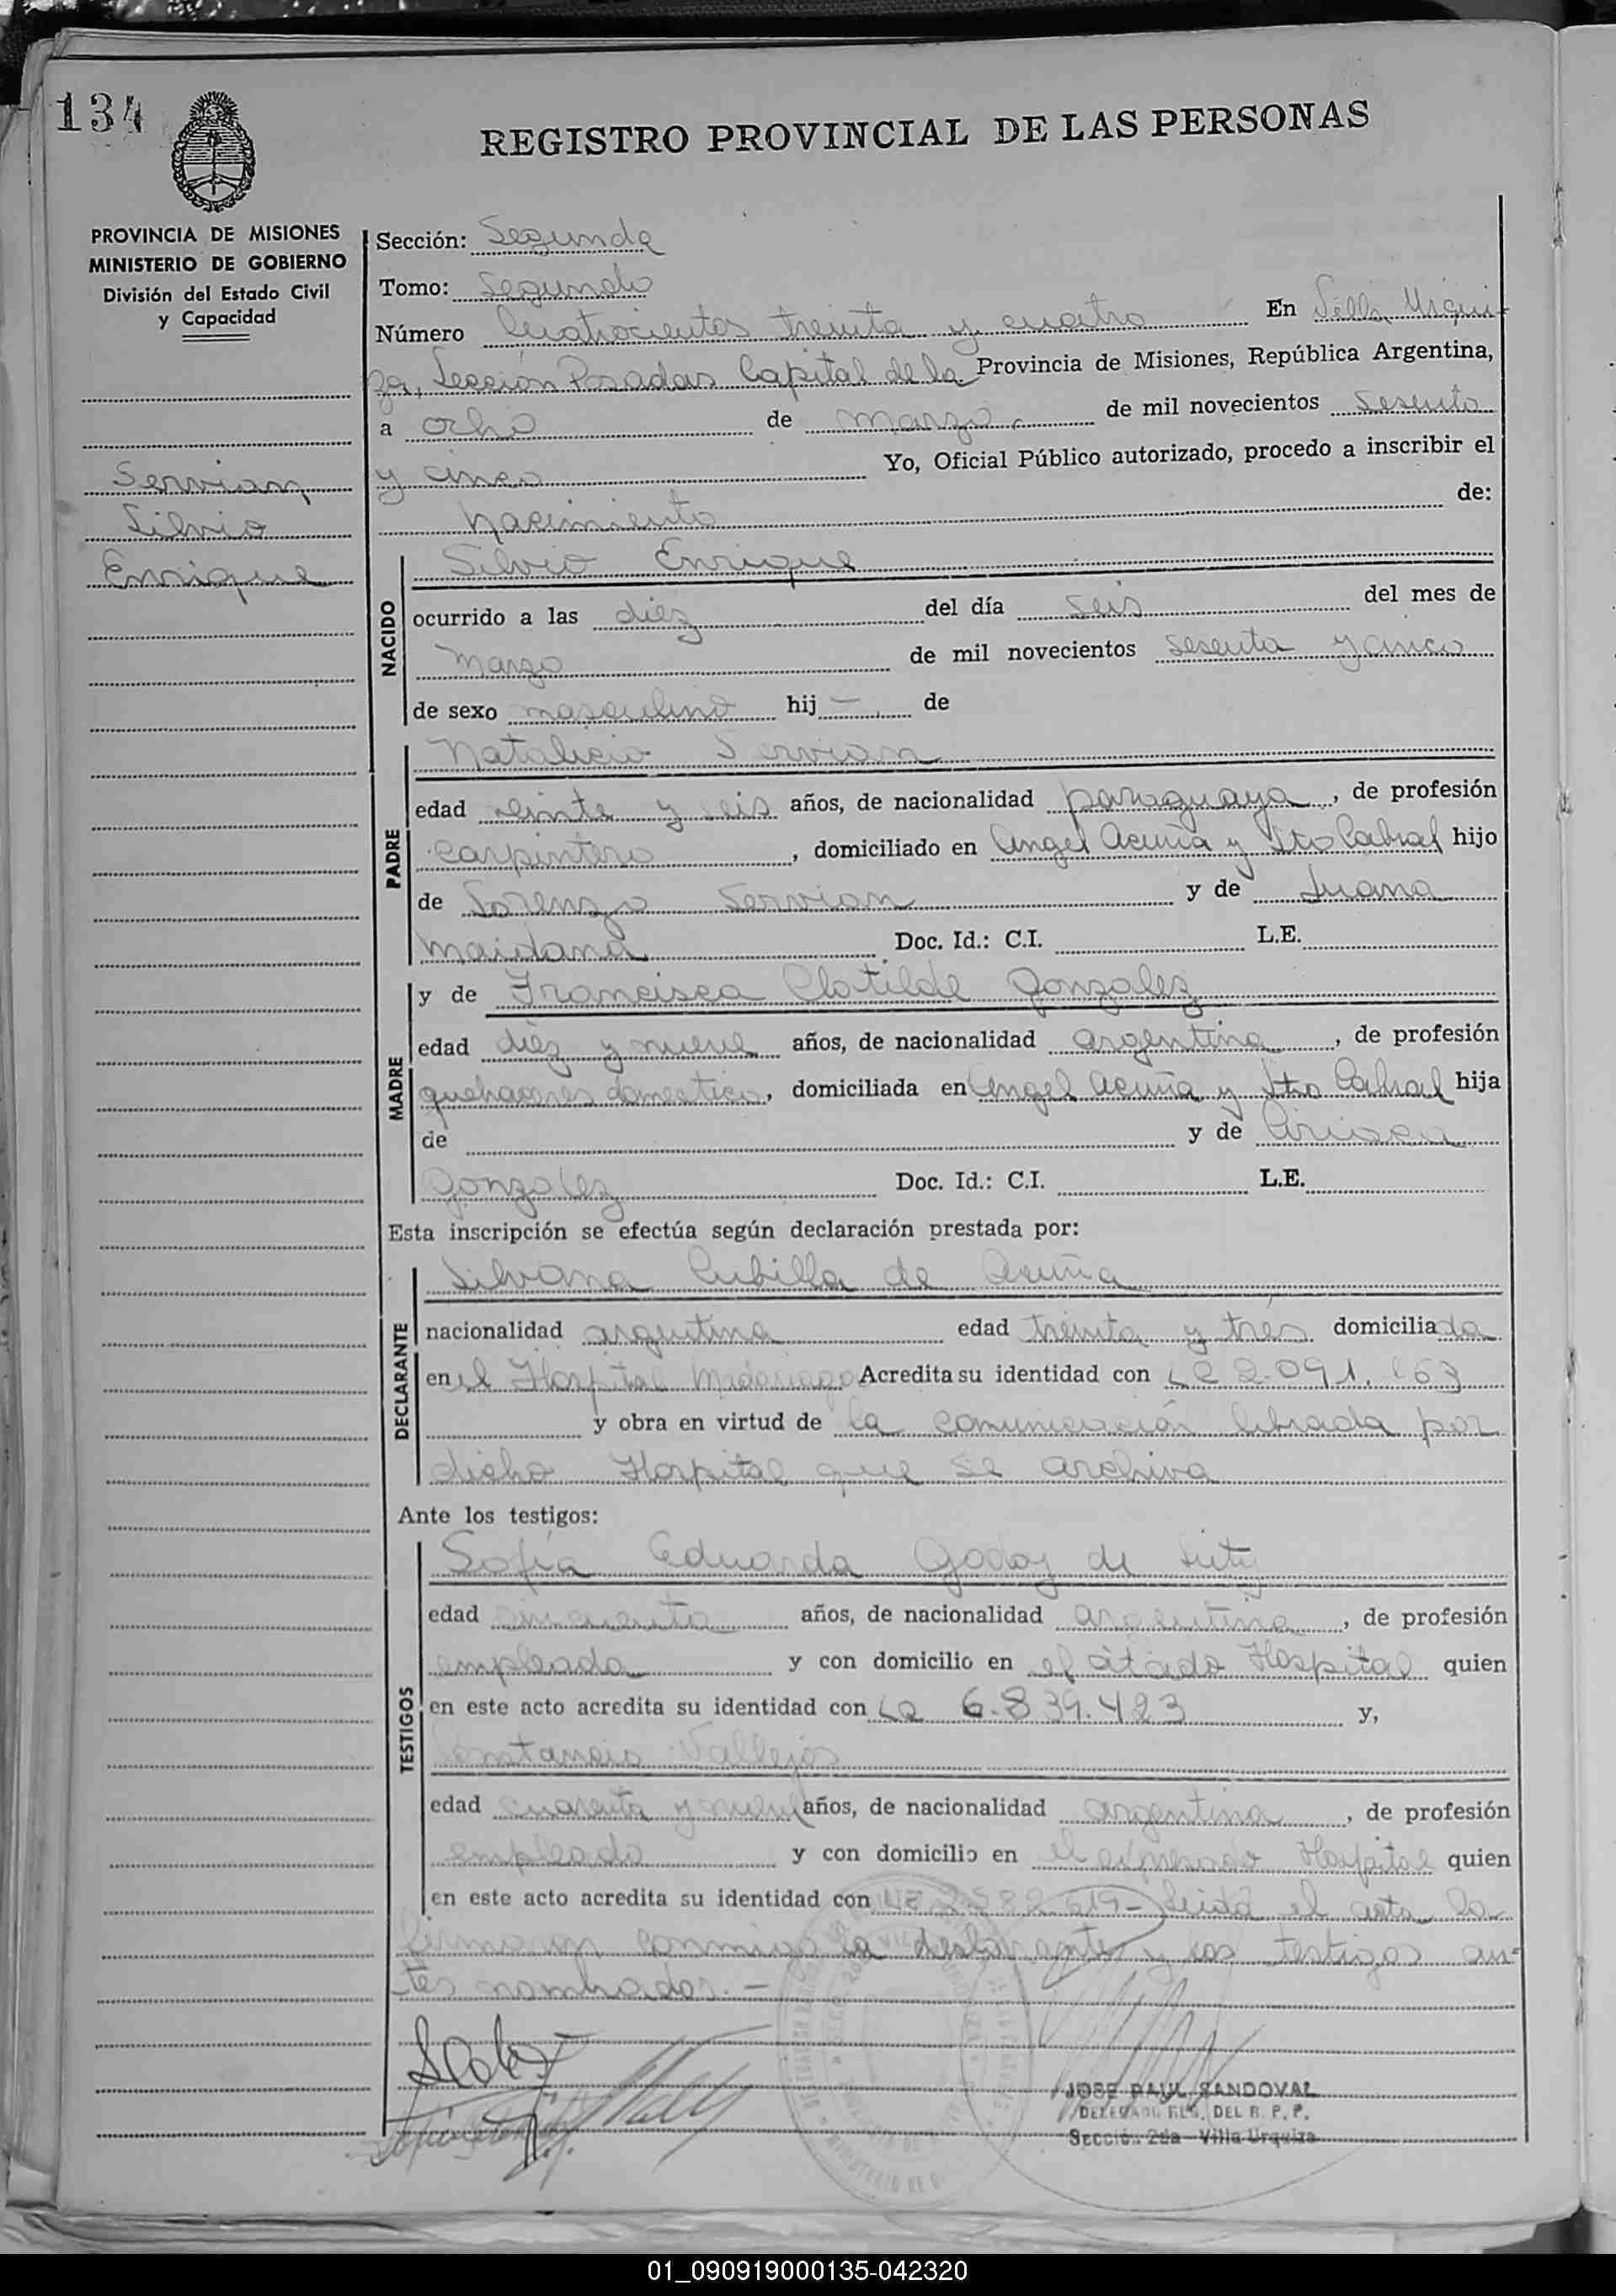 134
REGISTRO PROVINCIAL DE LAS PERSONAS
PROVINCIA DE MISIONES
MINISTERIO DE GOBIERNO
División del Estado Civil
y Capacidad
Servian
Silvio
Enrique
Sección: Segunda
Tomo: Segundo
Número Cuatrocientos treinta y cuatro En Villa Urqui-
za, Sección Posadas Capital de la Provincia de Misiones, República Argentina,
a ocho de marzo de mil novecientos sesenta
y cinco Yo, Oficial Público autorizado, procedo a inscribir el
nacimiento de:
NACIDO
Silvio Enrique
ocurrido a las diez del día seis del mes de
Marzo de mil novecientos sesenta y cinco
de sexo masculino hij — de
PADRE
Natalicio Servian
edad veinte y seis años, de nacionalidad paraguaya, de profesión
carpintero, domiciliado en Angel Acuña y Sto Cabral hijo
de Lorenzo Servian y de Juana
Maidana Doc. Id.: C.I. L.E.
MADRE
y de Francisca Clotilde Gonzalez
edad diez y nueve años, de nacionalidad argentina, de profesión
quehaceres domestico, domiciliada en Angel Acuña y Sto Cabral hija
de y de
Gonzalez Doc. Id.: C.I. L.E.
Esta inscripción se efectúa según declaración prestada por:
DECLARANTE
Silvana Cubilla de Acuña
nacionalidad argentina edad treinta y tres domiciliada
en el Hospital Madariaga Acredita su identidad con LC 2.091.
y obra en virtud de la comunicación librada por
dicho Hospital que se archiva
Ante los testigos:
TESTIGOS
Sofía Eduarda Godoy de
edad cincuenta años, de nacionalidad argentina, de profesión
empleada y con domicilio en el citado Hospital quien
en este acto acredita su identidad con LC 6.839.423 y,
Constancio Vallejos
edad cuarenta y nueve años, de nacionalidad argentina, de profesión
empleado y con domicilio en el expresado Hospital quien
en este acto acredita su identidad con Leida el acta la
firmaron conmigo la declarante y los testigos an-
tes nombrados. —
JOSE RAUL SANDOVAL
DELEGADO REG. DEL R. P. P.
Sección 2da Villa Urquiza
01_090919000135-042320